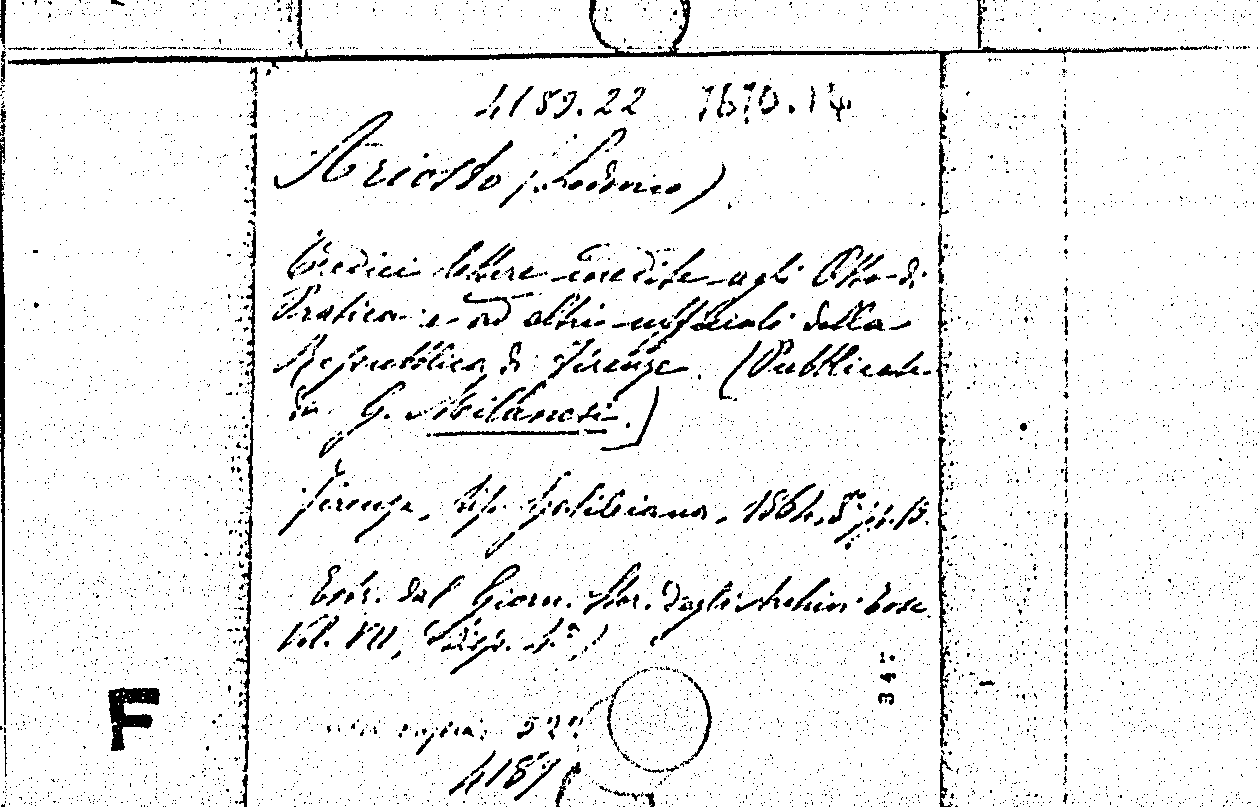 4159.22 7670.14
Ariosto (Lodovico)
Tredici lettere inedite agli Otto di
Pratica e ad altri ufficiali della
Repubblica di Firenze. (Pubblicate
da G. Milanesi.)
Firenze, tip. Galileiana, 1864, 8° pp. 15.
Estr. dal Giorn. Stor. degli Archivi Tosc.
Vol. VII, Disp. 4ª)
altra copia: 522
4187
F